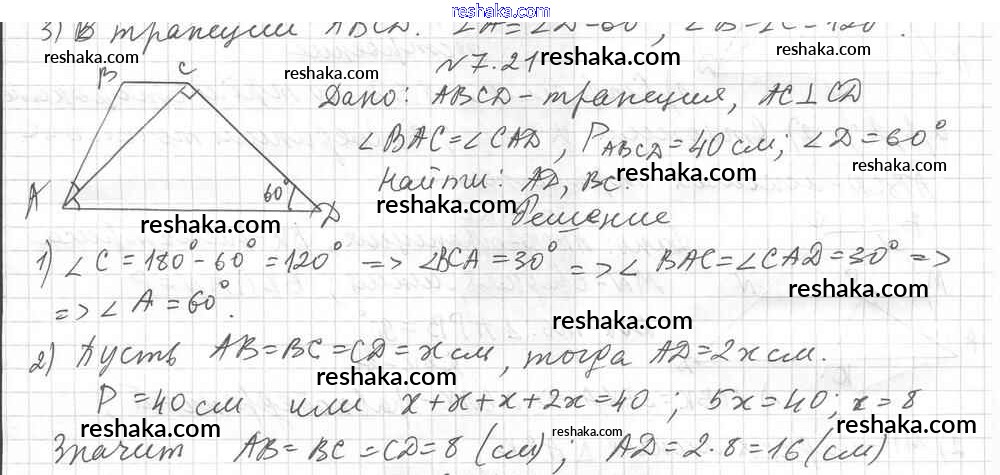 reshaka.com
3) В трапеции ABCD. ∠A=∠D=60°, ∠B=∠C=120°.
reshaka.com
reshaka.com
N7.21
reshaka.com
B C
Дано: ABCD-трапеция, AC⊥CD
reshaka.com
∠BAC=∠CAD, P_ABCD=40 см; ∠D=60°
reshaka.com
reshaka.com
Найти: AD, BC.
reshaka.com
A 60° D
reshaka.com
Решение
1) ∠C=180°-60°=120° => ∠BCA=30° => ∠BAC=∠CAD=30° =>
reshaka.com
=> ∠A=60°.
reshaka.com
2) Пусть AB=BC=CD=x см, тогда AD=2x см.
reshaka.com
P=40 см или x+x+x+2x=40; 5x=40; x=8
reshaka.com
reshaka.com
reshaka.com
Значит AB=BC=CD=8 (см); AD=2·8=16 (см)